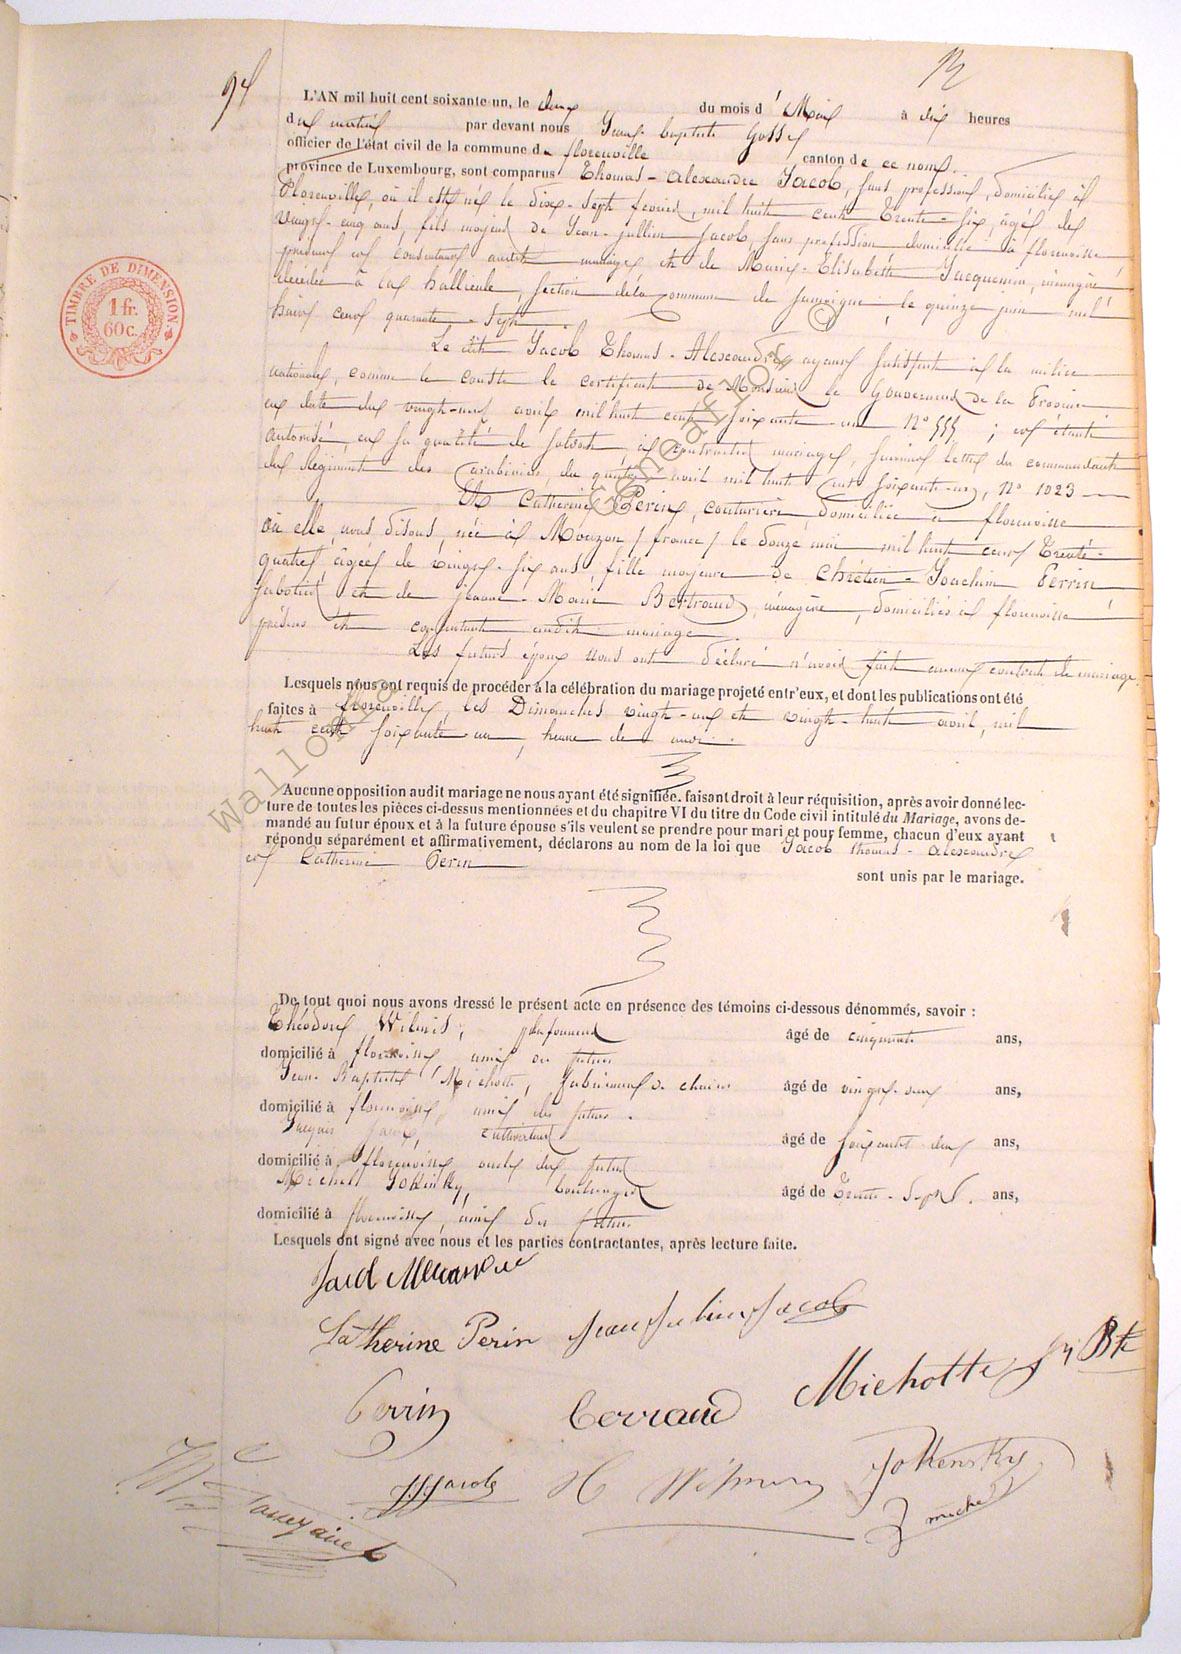 L'AN mil huit cent soixante un, le deux du mois d' Mai à dix heures
du matin par devant nous Jean Baptiste
officier de l'état civil de la commune de florenville canton de ce nom.
province de Luxembourg, sont comparus Thomas-Alexandre Jacob, sans profession, domicilié à
Florenville, où il est né le dix-sept fevrier, mil huit cent trente-six, âgé de
vingt-cinq ans, fils majeur de Jean-Jullien Jacob, sans profession domicilié à florenville
présent et consentant audit mariage et de Marie-Elisabeth Jacquemin, ménagère
décédée à section de la commune de Jamoigne, le quinze juin mil
huit cent quarante-sept.
Le dit Jacob Thomas-Alexandre ayant satisfait à la milice
nationale, comme le conste le certificat de Monsieur le Gouverneur de la Province
en date du vingt-neuf avril mil huit cent soixante-un N° 555 ; et étant
autorisé en sa qualité de soldat, à contracter mariage, suivant lettre du commandant
du Régiment des Carabiniers, du quatre avril mil huit cent soixante-un, N° 1023
Et Catherine Perin, couturière, domiciliée à florenville
où elle nous disons, née à Mouzon / france / le douze mai mil huit cent trente-
quatre âgée de vingt-six ans, fille majeure de Chrétien-Joachim Perrin
sabotier et de jeanne-Marie Bertrand, ménagère, domiciliés à florenville
présens et consentant audit mariage.
Les futurs époux nous ont déclaré n'avoir fait aucun contrat de mariage.
Lesquels nous ont requis de procéder à la célébration du mariage projeté entr'eux, et dont les publications ont été
faites à florenville, les Dimanches vingt-un et vingt-huit avril, mil
huit cent soixante un, heure de midi.
Aucune opposition audit mariage ne nous ayant été signifiée. faisant droit à leur réquisition, après avoir donné lec-
ture de toutes les pièces ci-dessus mentionnées et du chapitre VI du titre du Code civil intitulé du Mariage, avons de-
mandé au futur époux et à la future épouse s'ils veulent se prendre pour mari et pour femme, chacun d'eux ayant
répondu séparément et affirmativement, déclarons au nom de la loi que Jacob thomas-alexandre
et Catherine Perin
sont unis par le mariage.
De tout quoi nous avons dressé le présent acte en présence des témoins ci-dessous dénommés, savoir :
Théodore plafonneur âgé de cinquante ans,
domicilié à florenville, ami du futur
Jean Baptiste Michotte, fabricant de chaises âgé de vingt-deux ans,
domicilié à florenville, ami du futur.
Jacques Jacob, cultivateur âgé de soixante-deux ans,
domicilié à florenville, oncle du futur
Michel Jokensky, boulanger âgé de Trente-Sept ans,
domicilié à florenville, ami du futur
Lesquels ont signé avec nous et les parties contractantes, après lecture faite.
Jacob Alexandre
Catherine Perin Jean Julien Jacob
Michotte Jn Bte
Perrin Berrand
JJ Jacob Jokensky
michel
TIMBRE DE DIMENSION
1 fr.
60 c.
Wallonie Geneaflor ©